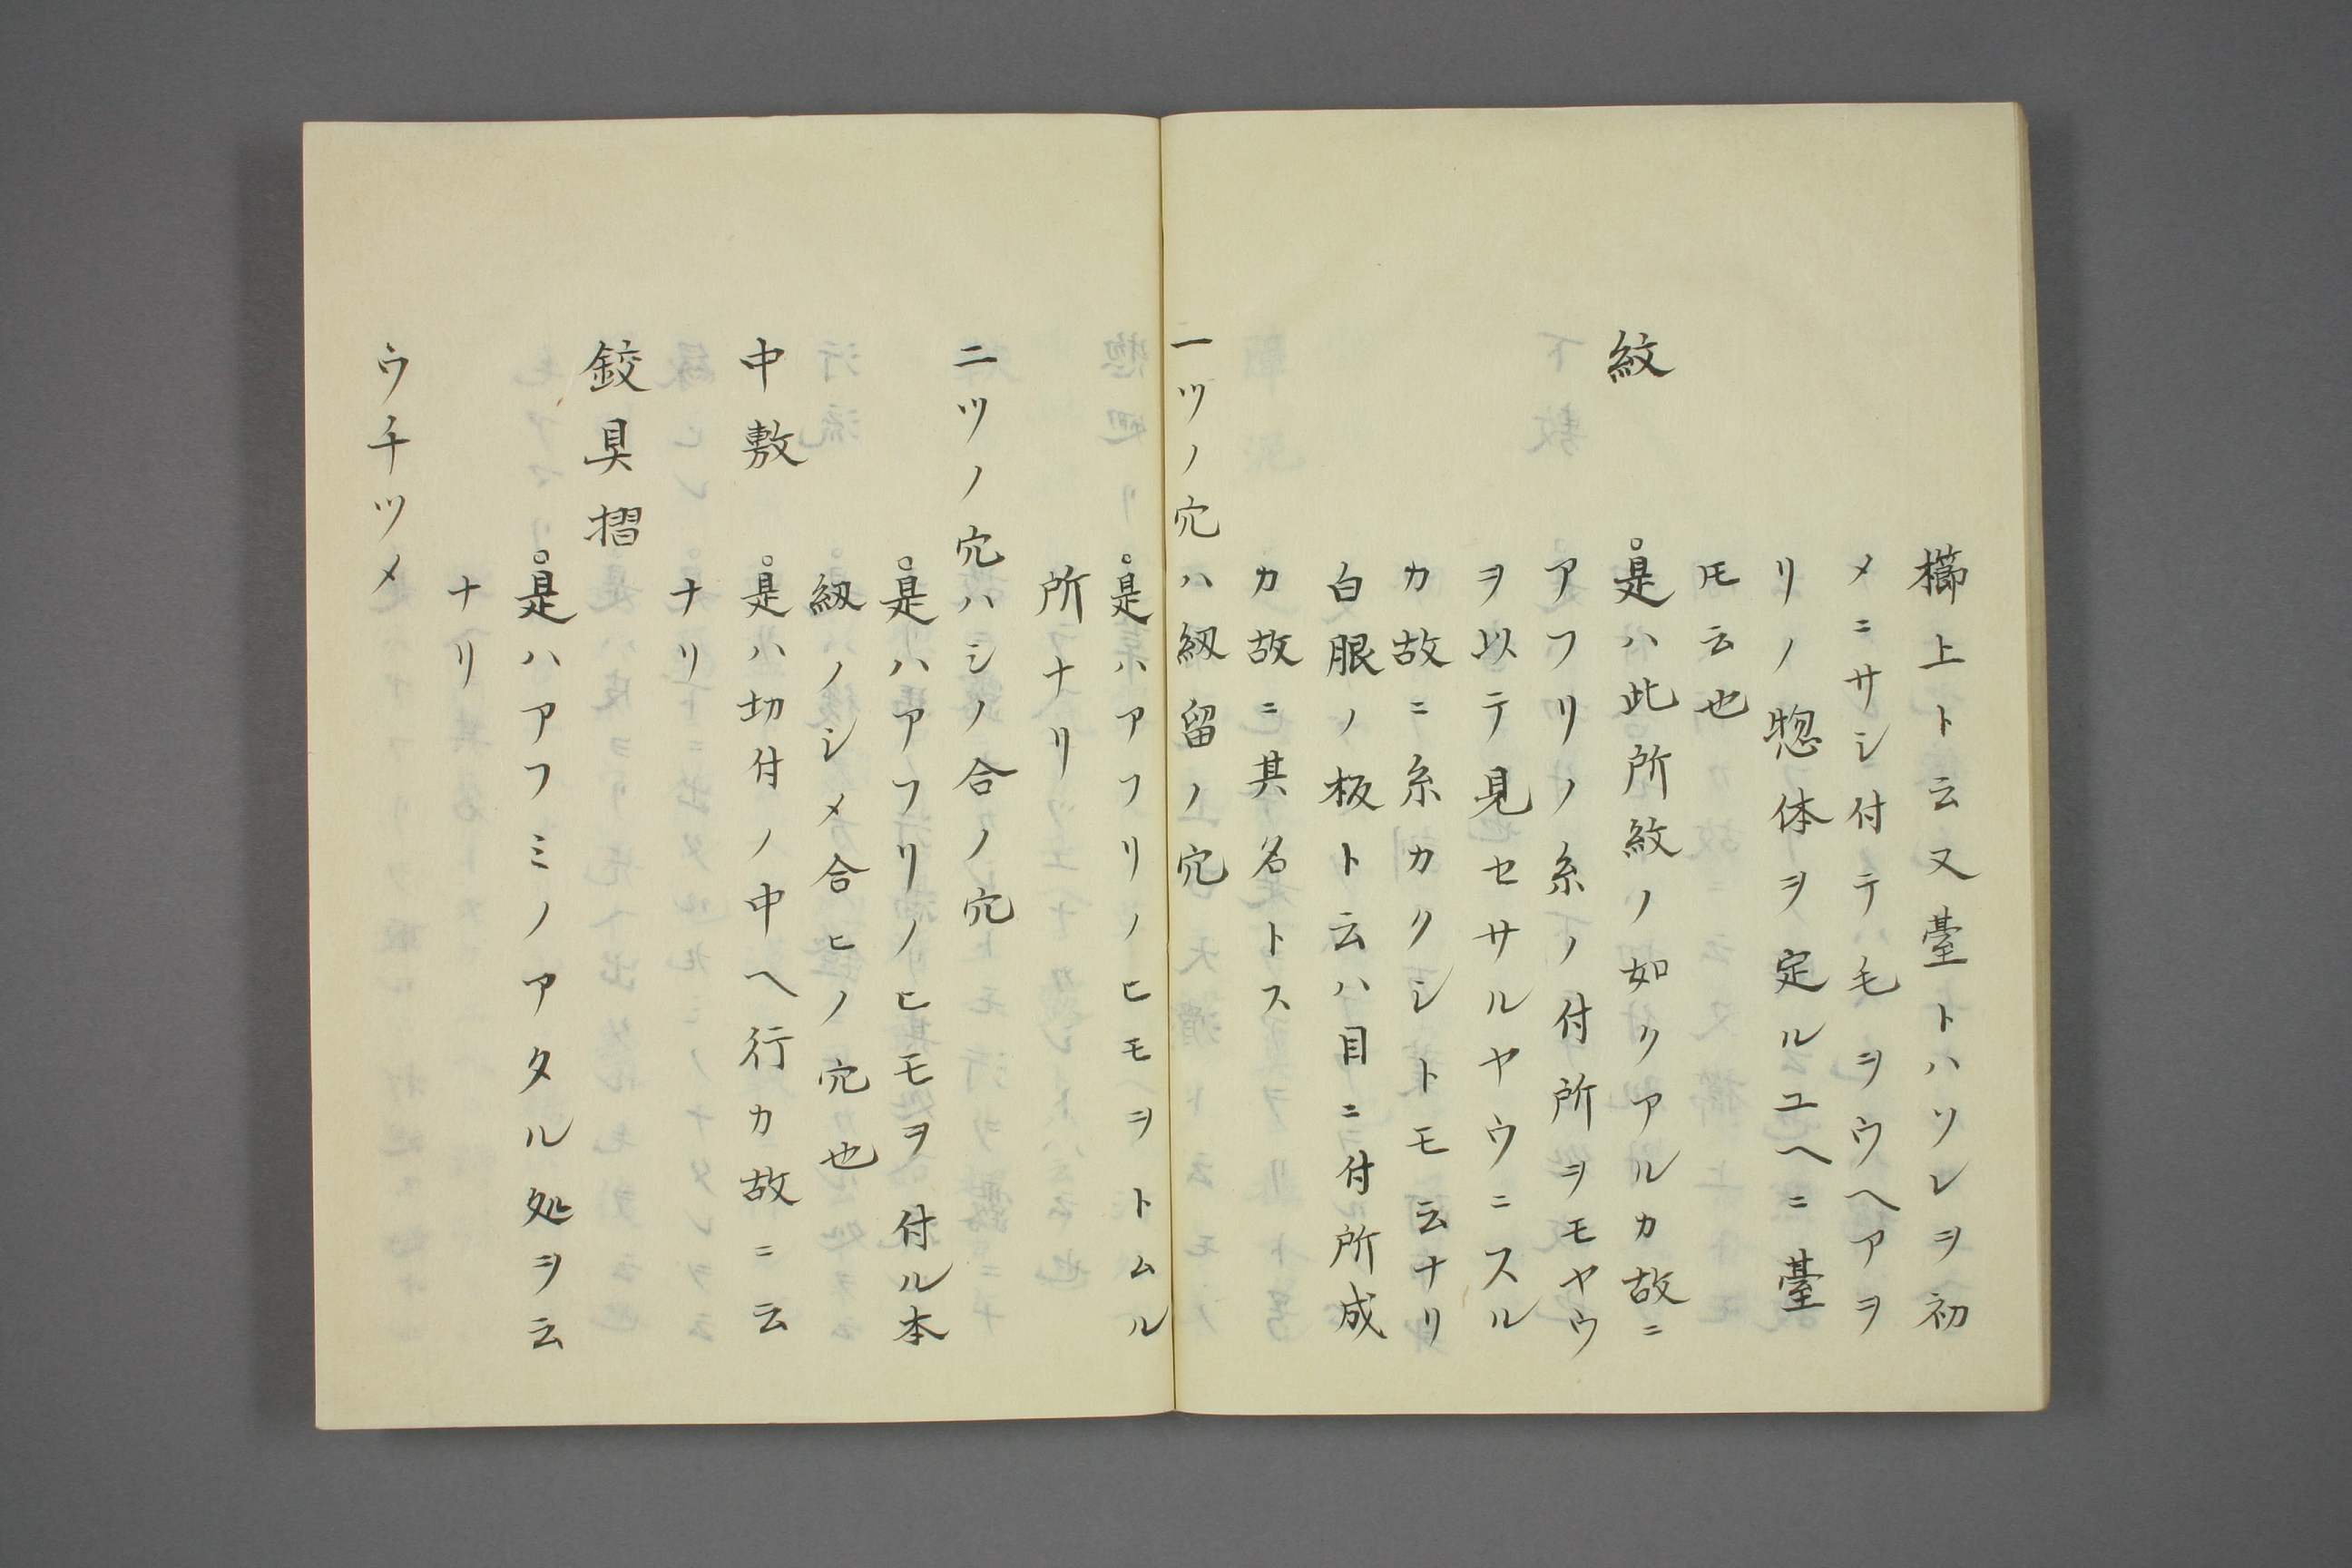 櫛上ト云又臺トハソレヲ初
メニサシ付テ毛ヲウヘアヲ
リノ惣体ヲ定ルユヘニ臺
𪜈云也
紋
是ハ此所紋ノ如クアルカ故ニ
アフリノ糸ノ付所ヲモヤウ
ヲ以テ見セサルヤウニスル
カ故ニ糸カクシトモ云ナリ
白眼ノ板ト云ハ目ニ付所成
カ故ニ其名トス
一ツノ穴ハ紉留ノ穴
是ハアフリノヒモヲトムル
所ナリ
二ツノ穴ハシノ合ノ穴
是ハアフリノヒモヲ付ル本
紉ノシメ合ヒノ穴也
中敷
是ハ切付ノ中ヘ行カ故ニ云
ナリ
鉸具摺
是ハアフミノアタル処ヲ云
ナリ
ウチツメ